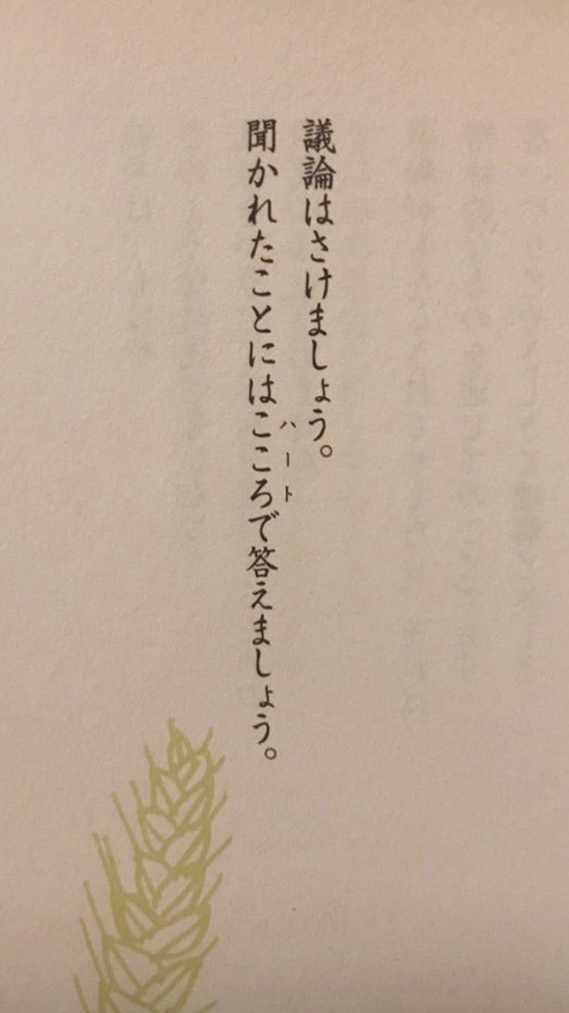 議論はさけましょう。
聞かれたことにはこころで答えましょう。
ハート